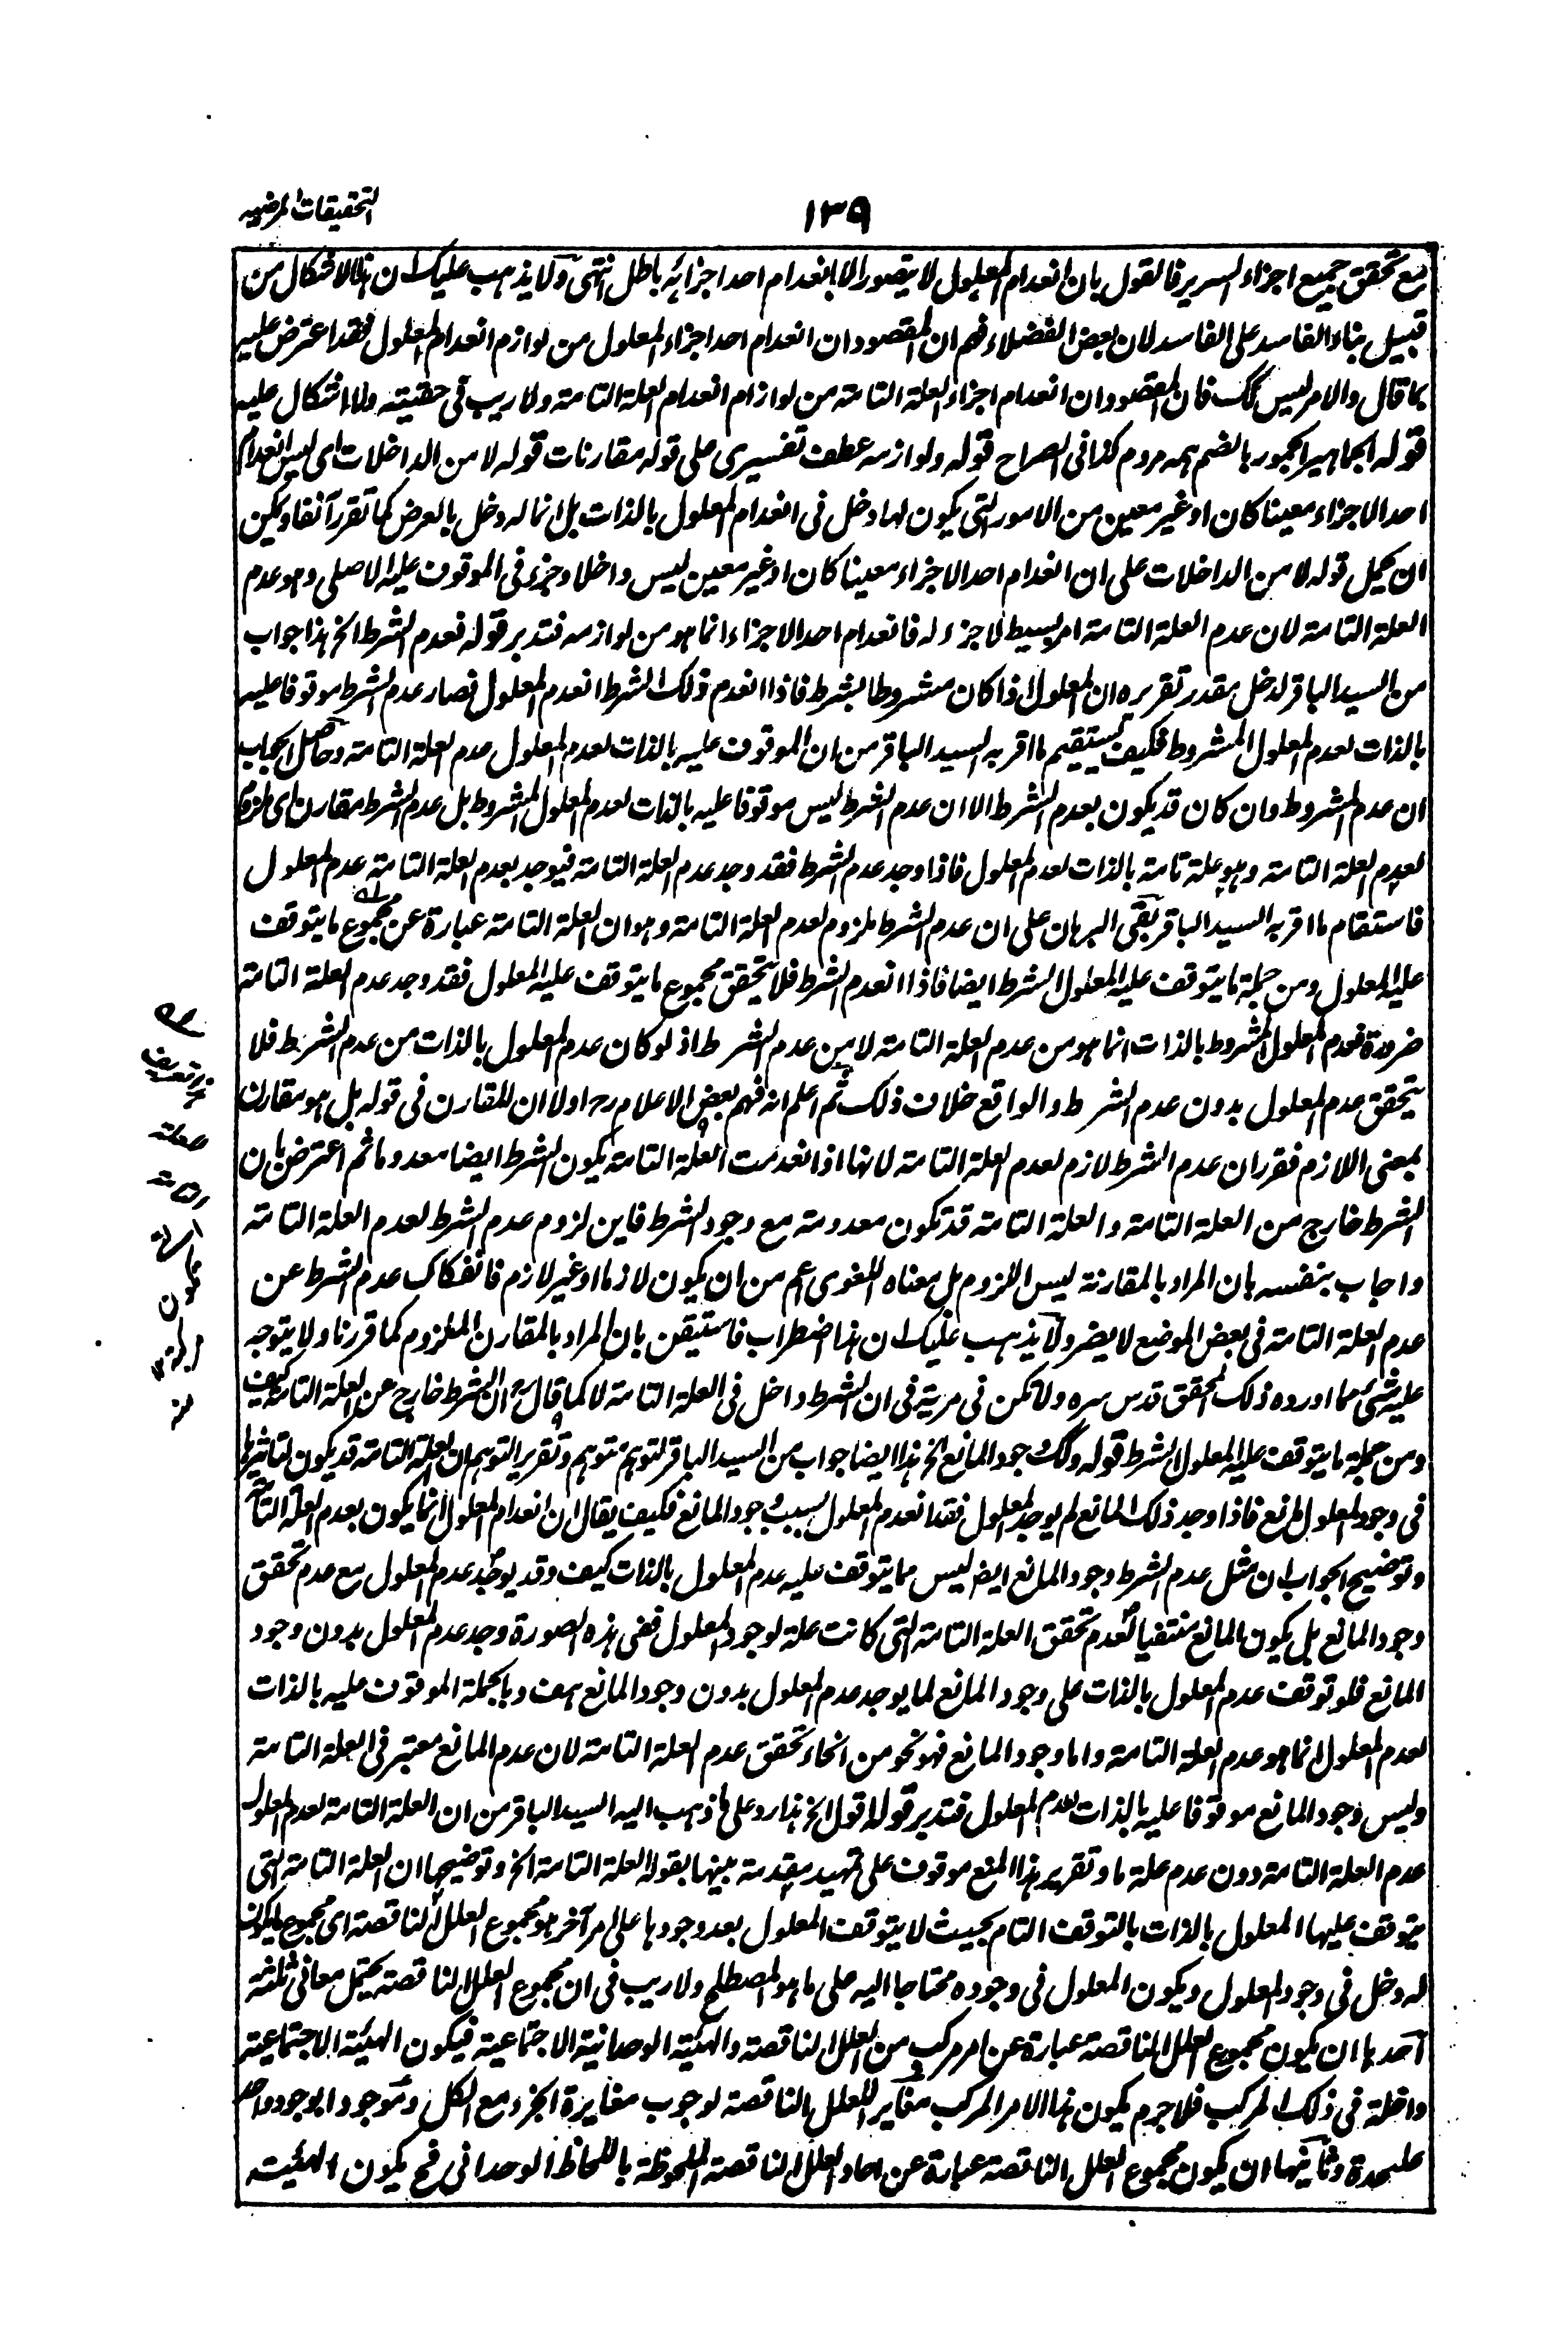 التحقیقات المرضیه
۱۳۹
مع تحقق جمیع اجزاء السریر فالقول بان انعدام المعلول لا یتصور الا بانعدام احد اجزائه باطل انتهی ولا یذهب علیک ان هذا الاشکال من
قبیل بناء الفاسد علی الفاسد لان بعض الفضلاء فهم ان المقصود ان انعدام احد اجزاء المعلول من لوازم انعدام المعلول فقد اعترض علیه
بما قال والامر لیس کک فان المقصود ان انعدام اجزاء العلة التامة من لوازم انعدام العلة التامة ولا ریب فی حقیته ولا اشکال علیه
قوله الجماهیر الجمهور بالضم همه مردم کذا فی الصراح قوله ولوازمه عطف تفسیری علی قوله مقارنات قوله لا من الداخلات ای لیس انعدام
احد الاجزاء معینا کان او غیر معین من الامور التی یکون لها دخل فی انعدام المعلول بالذات بل انما له دخل بالعرض کما تقرر آنفا ویمکن
ان یحمل قوله لا من الداخلات علی ان انعدام احد الاجزاء معینا کان او غیر معین لیس داخلا وجزء فی الموقوف علیه الاصلی وهو عدم
العلة التامة لان عدم العلة التامة امر بسیط لا جزء له فانعدام احد الاجزاء انما هو من لوازمه فتدبر قوله فعدم الشرط الخ هذا جواب
من السید الباقر لدخل مقدر تقریره ان المعلول اذا کان مشروطا بشرط فاذا انعدم ذلک الشرط انعدم المعلول فصار عدم الشرط موقوفا علیه
بالذات لعدم المعلول المشروط فکیف یستقیم ما اقر به السید الباقر من ان الموقوف علیه بالذات لعدم المعلول عدم العلة التامة وحاصل الجواب
ان عدم المشروط وان کان قد یکون بعدم الشرط الا ان عدم الشرط لیس موقوفا علیه بالذات لعدم المعلول المشروط بل عدم الشرط مقارن ای ملزوم
لعدم العلة التامة وهو علة تامة بالذات لعدم المعلول فاذا وجد عدم الشرط فقد وجد عدم العلة التامة فیوجد بعدم العلة التامة عدم المعلول
فاستقام ما اقر به السید الباقر بقی البرهان علی ان عدم الشرط ملزوم لعدم العلة التامة وهو ان العلة التامة عبارة عن مجموع ما یتوقف
علیه المعلول ومن جملة ما یتوقف علیه المعلول الشرط ایضا فاذا انعدم الشرط فلا یتحقق مجموع ما یتوقف علیه المعلول فقد وجد عدم العلة التامة
ضرورة فعدم المعلول المشروط بالذات انما هو من عدم العلة التامة لا من عدم الشرط اذ لو کان عدم المعلول بالذات من عدم الشرط فلا
یتحقق عدم المعلول بدون عدم الشرط والواقع خلاف ذلک ثم اعلم انه فهم بعض الاعلام رح اولا ان المقارن فی قوله بل هو مقارن
بمعنی اللازم فقرر ان عدم الشرط لازم لعدم العلة التامة لانها اذا انعدمت العلة التامة یکون الشرط ایضا معدوما ثم اعترض بان
الشرط خارج من العلة التامة والعلة التامة قد تکون معدومة مع وجود الشرط فاین لزوم عدم الشرط لعدم العلة التامة
واجاب بنفسه بان المراد بالمقارنة لیس اللزوم بل معناه اللغوی اعم من ان یکون لازما او غیر لازم فانفکاک عدم الشرط عن
عدم العلة التامة فی بعض الموضع لا یضر ولا یذهب علیک ان هذا اضطراب فاستیقن بان المراد بالمقارن الملزوم کما قررنا ولا یتوجه
علیه شیء مما اورده ذلک المحقق قدس سره ولا تکن فی مریة فی ان الشرط داخل فی العلة التامة لا کما قال رح ان الشرط خارج عن العلة التامة کیف
ومن جملة ما یتوقف علیه المعلول الشرط قوله وکک وجود المانع الخ هذا ایضا جواب من السید الباقر لتوهم متوهم وتقریر التوهم ان العلة التامة قد یکون لتاثیرها
فی وجود المعلول مانع فاذا وجد ذلک المانع لم یوجد المعلول فقد انعدم المعلول بسبب وجود المانع فکیف یقال ان انعدام المعلول انما یکون بعدم العلة التامة
وتوضیح الجواب ان مثل عدم الشرط وجود المانع ایضا لیس مما یتوقف علیه عدم المعلول بالذات کیف وقد یوجد عدم المعلول مع عدم تحقق
وجود المانع بل یکون المانع منتفیا لعدم تحقق العلة التامة التی کانت علة لوجود المعلول ففی هذه الصورة وجد عدم المعلول بدون وجود
المانع فلو توقف عدم المعلول بالذات علی وجود المانع لما یوجد عدم المعلول بدون وجود المانع هف وبالجملة الموقوف علیه بالذات
لعدم المعلول انما هو عدم العلة التامة واما وجود المانع فهو نحو من انحاء تحقق عدم العلة التامة لان عدم المانع معتبر فی العلة التامة
ولیس وجود المانع موقوفا علیه بالذات لعدم المعلول فتدبر قوله اقول الخ هذا رد علی ما ذهب الیه السید الباقر من ان العلة التامة لعدم المعلول
عدم العلة التامة دون عدم علة ما وتقریر هذا المنع موقوف علی تمهید مقدمة بینها بقوله العلة التامة الخ وتوضیحها ان العلة التامة التی
یتوقف علیها المعلول بالذات بالتوقف التام بحیث لا یتوقف المعلول بعد وجودها علی امر آخر هو مجموع العلل الناقصة ای مجموع ما یکون
له دخل فی وجود المعلول ویکون المعلول فی وجوده محتاجا الیه علی ما هو المصطلح ولا ریب فی ان مجموع العلل الناقصة یحتمل معانی ثلثة
احدها ان یکون مجموع العلل الناقصة عبارة عن امر مرکب من العلل الناقصة والهیئة الوحدانیة الاجتماعیة فیکون الهیئة الاجتماعیة
داخلة فی ذلک المرکب فلا جرم یکون هذا الامر المرکب مغایر للعلل الناقصة لوجوب مغایرة الجزء مع الکل وموجودا بوجود واحد
علیحدة وثانیها ان یکون مجموع العلل الناقصة عبارة عن احاد العلل الناقصة الملحوظة باللحاظ الوحدانی فح یکون الهیئة